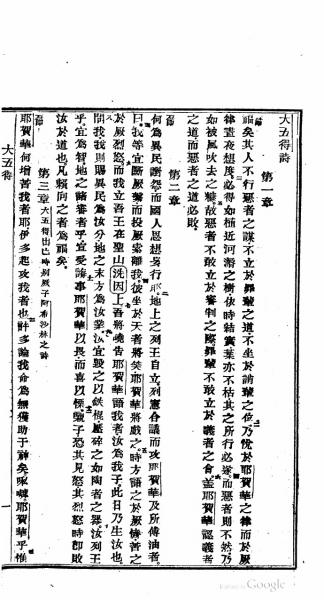 大五得詩
第一章
福矣其人不行惡者之謀不立於罪輩之道不坐於誚輩之位乃悅於耶賀華之律而於厥
律晝夜想度必得如植近河濱之樹依時結實葉亦不枯其之所行必遂而惡者則不然乃
如被風吹去之糠故惡者不敢立於審判之際罪輩不敢立於義者之會蓋耶賀華認義者
之道而惡者之道必敗
第二章
何為異民謗而國人思想旁行耶地上之列王自立列憲合議而攻耶賀華及所傅油者
曰我等宜斷厥縛而投厥索離我彼坐於天者將笑耶賀華將戲之時方語之於厥憤苦之
於厥烈怒而我立吾王在聖山洗因上吾將曉告耶賀華語我者汝為我子此日乃生汝也
問我我則賜異民為汝分地之末方為汝業汝宜毀之以鐵棍壓碎之如陶者之器汝列王
乎宜為智地之諸審者乎宜愛誨事耶賀華以畏而喜以慄親子恐其見怒其烈怒時卽敗
汝於道也凡賴向之者為福矣
第三章 大五得出亡時別厥子阿希沙林之詩
耶賀華何增苦我者耶伊多起攻我者也許多論我命為無獲助于神矣耶賀華乎惟
大五得 一
Google